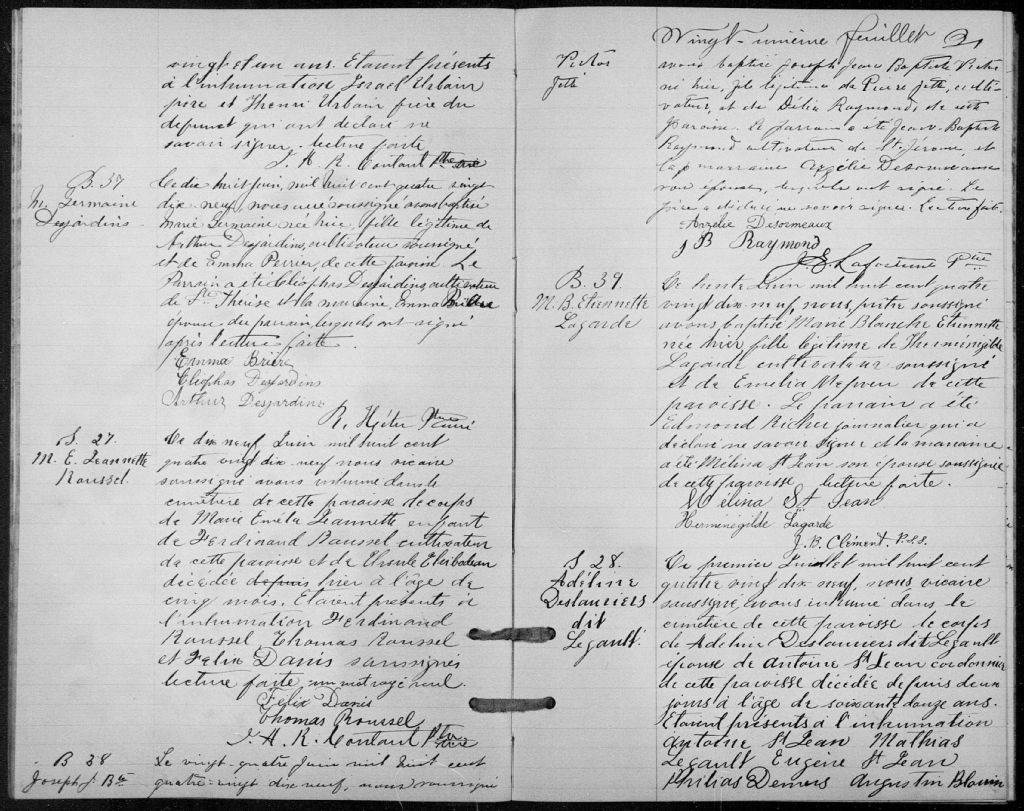 vingt et un ans. Etaient présents
à l'inhumation Israel Urbain
père et Henri Urbain frère du
defunct qui ont declaré ne
savoir signer. lecture faite
J. A. R. Contant Ptre
B. 37
M. Germaine
Desjardins
Ce dix huit Juin, mil huit cent quatre vingt
dix-neuf, nous curé soussigné avons baptisé
Marie Germaine née hier, fille légitime de
Arthur Desjardins, cultivateur soussigné
et de Emma Perrier, de cette paroisse. Le
Parrain a été Cléophas Desjardins cultivateur
de Ste Thérèse et la marraine, Emma Brière
épouse du parrain, lesquels ont signé
après lecture faite.
Emma Brière
Cléophas Desjardins
Arthur Desjardins
Ptre Curé
S. 27.
M. E. Jeannette
Roussel.
Ce dix neuf Juin mil huit cent
quatre vingt dix-neuf nous vicaire
soussigné avons inhumé dans le
cimetière de cette paroisse le corps
de Marie Emela Jeannette enfant
de Ferdinand Roussel cultivateur
de cette paroisse et de Ursule Thibodeau
décédée depuis hier à l'âge de
cinq mois. Etaient présents à
l'inhumation Ferdinand
Roussel Thomas Roussel
et Felix Danis soussignés
lecture faite un mot rayé nul.
Felix Danis
Thomas Roussel
J. A. R. Contant Ptre
B 38
Joseph J. Bte
Le vingt-quatre Juin mil huit cent
quatre-vingt dix neuf, nous soussigné
Vingt-unième feuillet
Victor
Jetté
avons baptisé Joseph Jean Baptiste Victor
né hier, fils légitime de Pierre Jetté, culti-
vateur, et de Délia Raymond, de cette
paroisse. Le parrain a été Jean-Baptiste
Raymond cultivateur de St. Jérôme, et
la marraine Azélie Desormeaux
son épouse, lesquels ont signé. Le
père a déclaré ne savoir signer. Lecture faite.
Azélie Desormeaux
J B Raymond
J. E. Lafortune Ptre
B. 39.
M. B. Etiennette
Lagarde
Ce trente Juin mil huit cent quatre
vingt dix-neuf, nous, prêtre soussigné
avons baptisé Marie Blanche Etiennette
née hier fille légitime de Herménégilde
Lagarde cultivateur soussigné
et de Emelia de cette
paroisse. Le parrain a été
Edmond Richer journalier qui a
déclaré ne savoir signer et la marraine
a été Mélina St Jean son épouse soussignée
de cette paroisse lecture faite.
Mélina St Jean
Herminégilde Lagarde
J. B. Clément. P.S.S.
S 28.
Adéline
Deslauriers
dit
Legault.
Ce premier Juillet mil huit cent
quatre vingt dix neuf, nous vicaire
soussigné avons inhumé dans le
cimetière de cette paroisse le corps
de Adéline Deslauriers dit Legault
épouse de Antoine St Jean cordonnier
de cette paroisse décédée depuis deux
jours à l'âge de soixante douze ans.
Etaient présents à l'inhumation
Antoine St Jean Mathias
Legault Eugène St Jean
Philias Demers Augustin Blouin